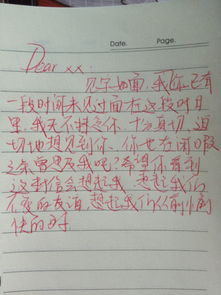 Date. Page.
Dear xx.
见字如面,我你已有
一段时间未见过面在这段时日
里,我无不想念你,十分真切,迫
切地想见到你、你也在闲暇
之余曾思及我吧?希望你看到
这封信会想起我,想起我们
不变的友谊,想起我们从前
快的时